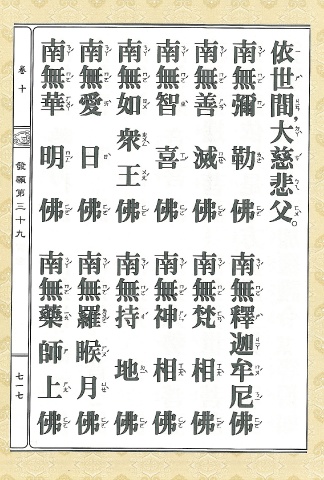 依世間,大慈悲父。
南無彌勒佛　南無釋迦牟尼佛
南無善滅佛　南無梵相佛
南無智喜佛　南無神相佛
南無如眾王佛　南無持地佛
南無愛日佛　南無羅睺月佛
南無華明佛　南無藥師上佛
卷十　發願第三十九　七一七